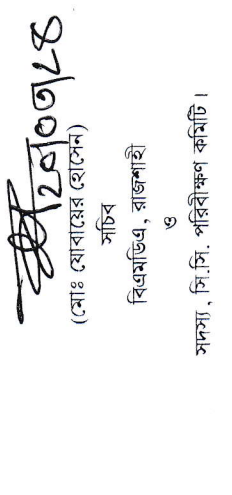 ২৮/০৩/২৪
(মোঃ যোবায়ের হোসেন)
সচিব
বিএমডিএ, রাজশাহী
ও
সদস্য, সি.সি. পরিবীক্ষণ কমিটি।